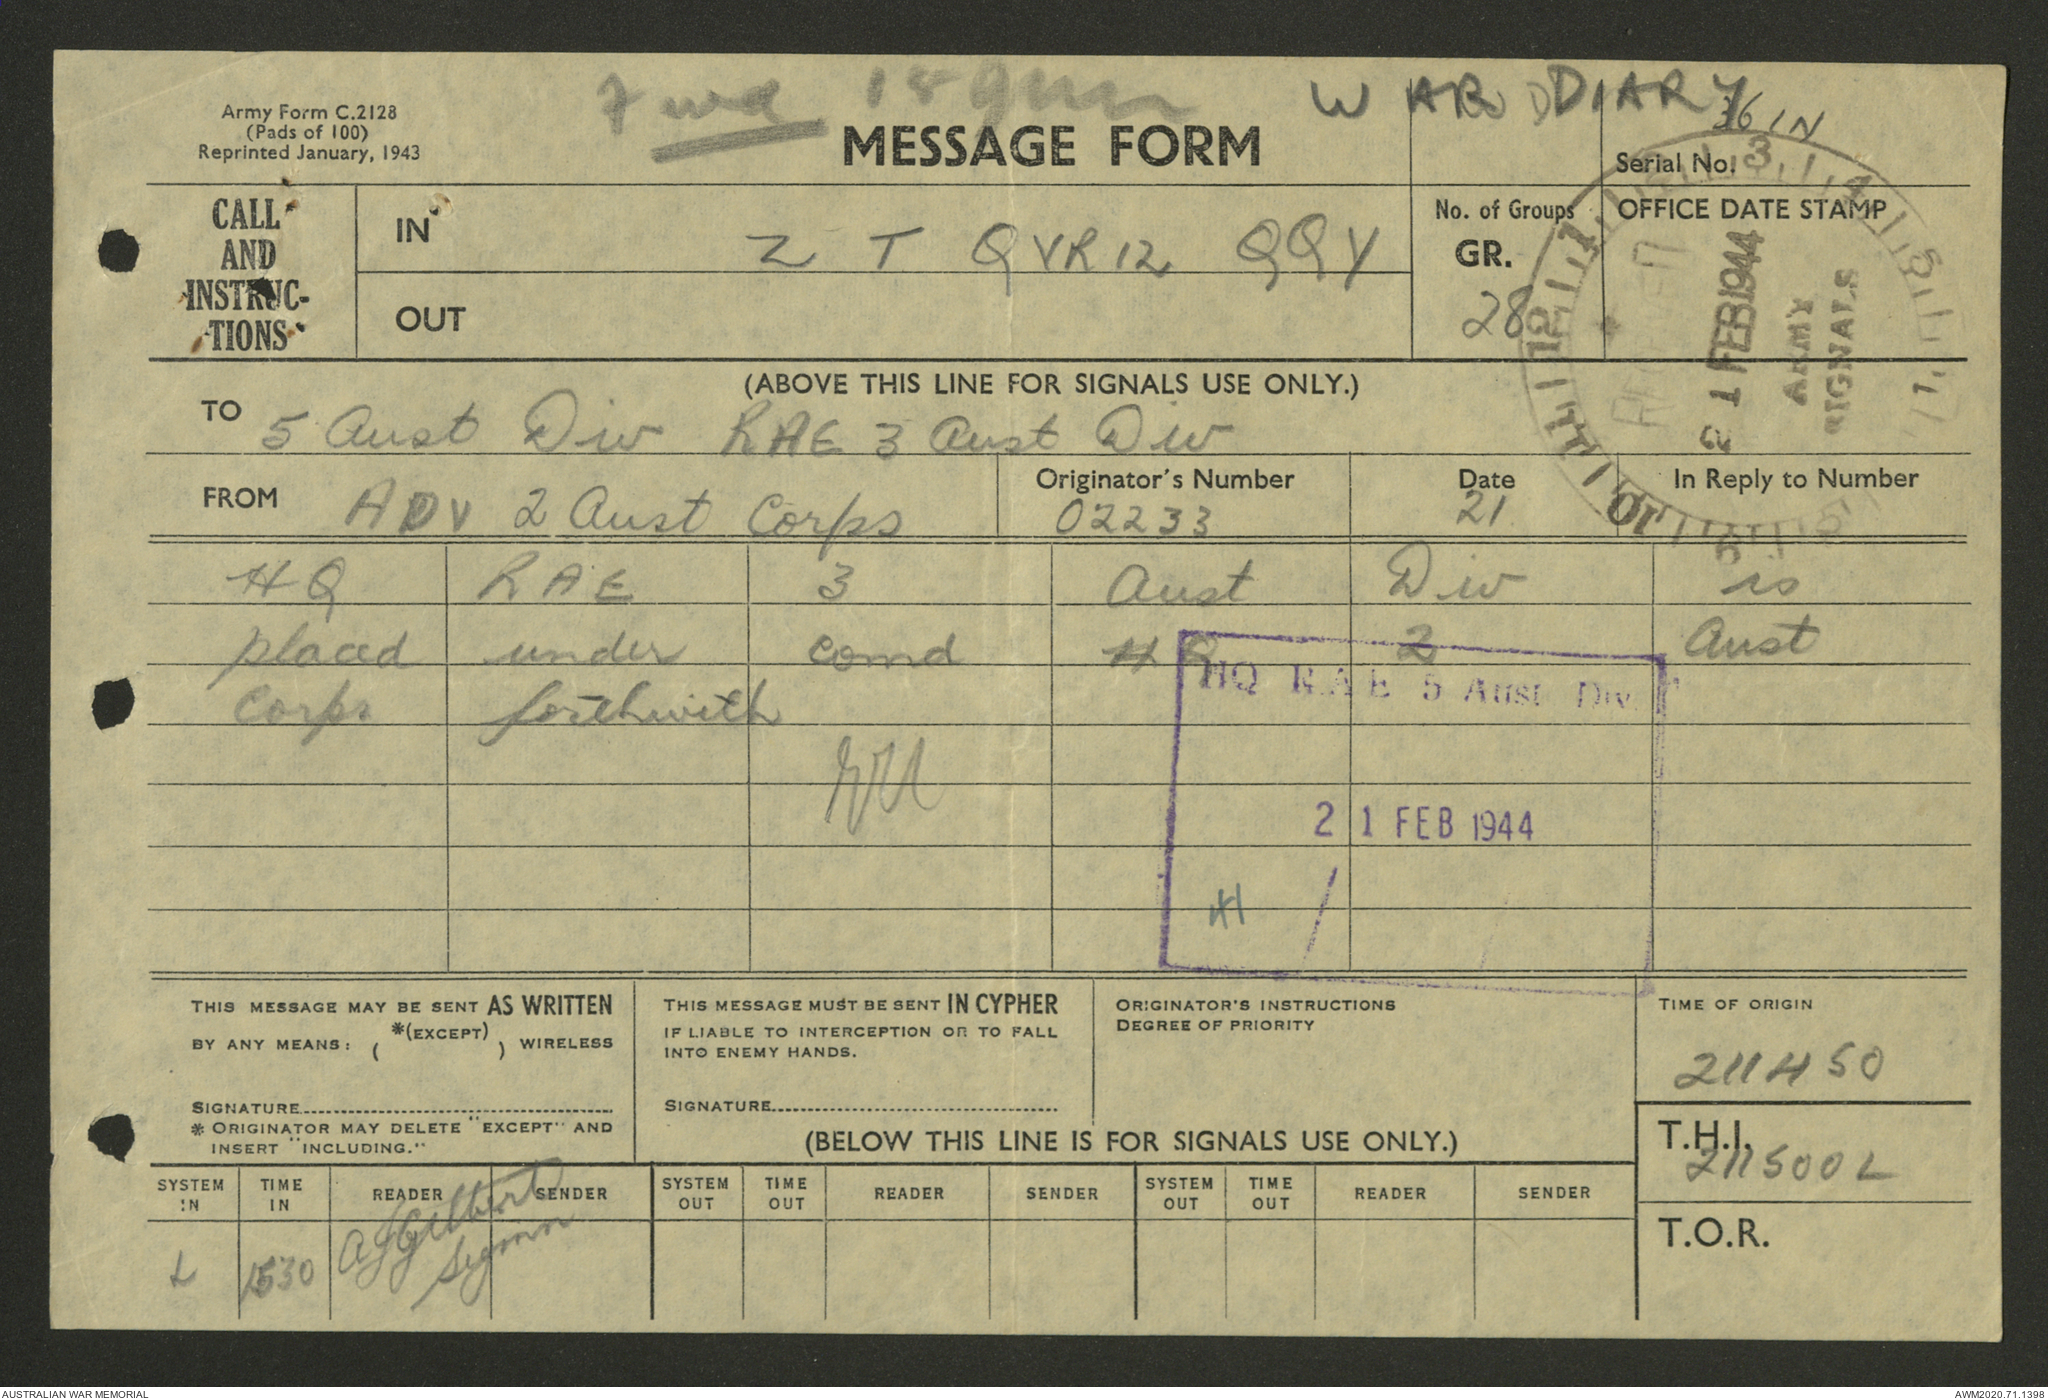 WAR DIARY
Army Form C.2128
(Pads of 100)
Reprinted January, 1943
MESSAGE FORM
36 IN
Serial No.
CALL AND INSTRUC-TIONS
IN
Z T QVR12 QQY
OUT
No. of Groups
GR.
28
OFFICE DATE STAMP
21 FEB 1944
ARMY SIGNALS
(ABOVE THIS LINE FOR SIGNALS USE ONLY.)
TO 5 Aust Div RAE 3 Aust Div
FROM ADV 2 Aust Corps
Originator's Number
02233
Date
21
In Reply to Number
HQ RAE 3 Aust Div is
placed under comd HQ 2 Aust
Corps forthwith
HQ R.A.E 5 Aust Div.
21 FEB 1944
THIS MESSAGE MAY BE SENT AS WRITTEN
BY ANY MEANS: ( *(EXCEPT) ) WIRELESS
SIGNATURE
* ORIGINATOR MAY DELETE "EXCEPT" AND
INSERT "INCLUDING."
THIS MESSAGE MUST BE SENT IN CYPHER
IF LIABLE TO INTERCEPTION OR TO FALL
INTO ENEMY HANDS.
SIGNATURE
ORIGINATOR'S INSTRUCTIONS
DEGREE OF PRIORITY
TIME OF ORIGIN
211450
(BELOW THIS LINE IS FOR SIGNALS USE ONLY.)
T.H.I.
211500L
T.O.R.
SYSTEM IN TIME IN READER SENDER SYSTEM OUT TIME OUT READER SENDER SYSTEM OUT TIME OUT READER SENDER
L 1530 Gilbert
AUSTRALIAN WAR MEMORIAL
AWM2020.71.1398